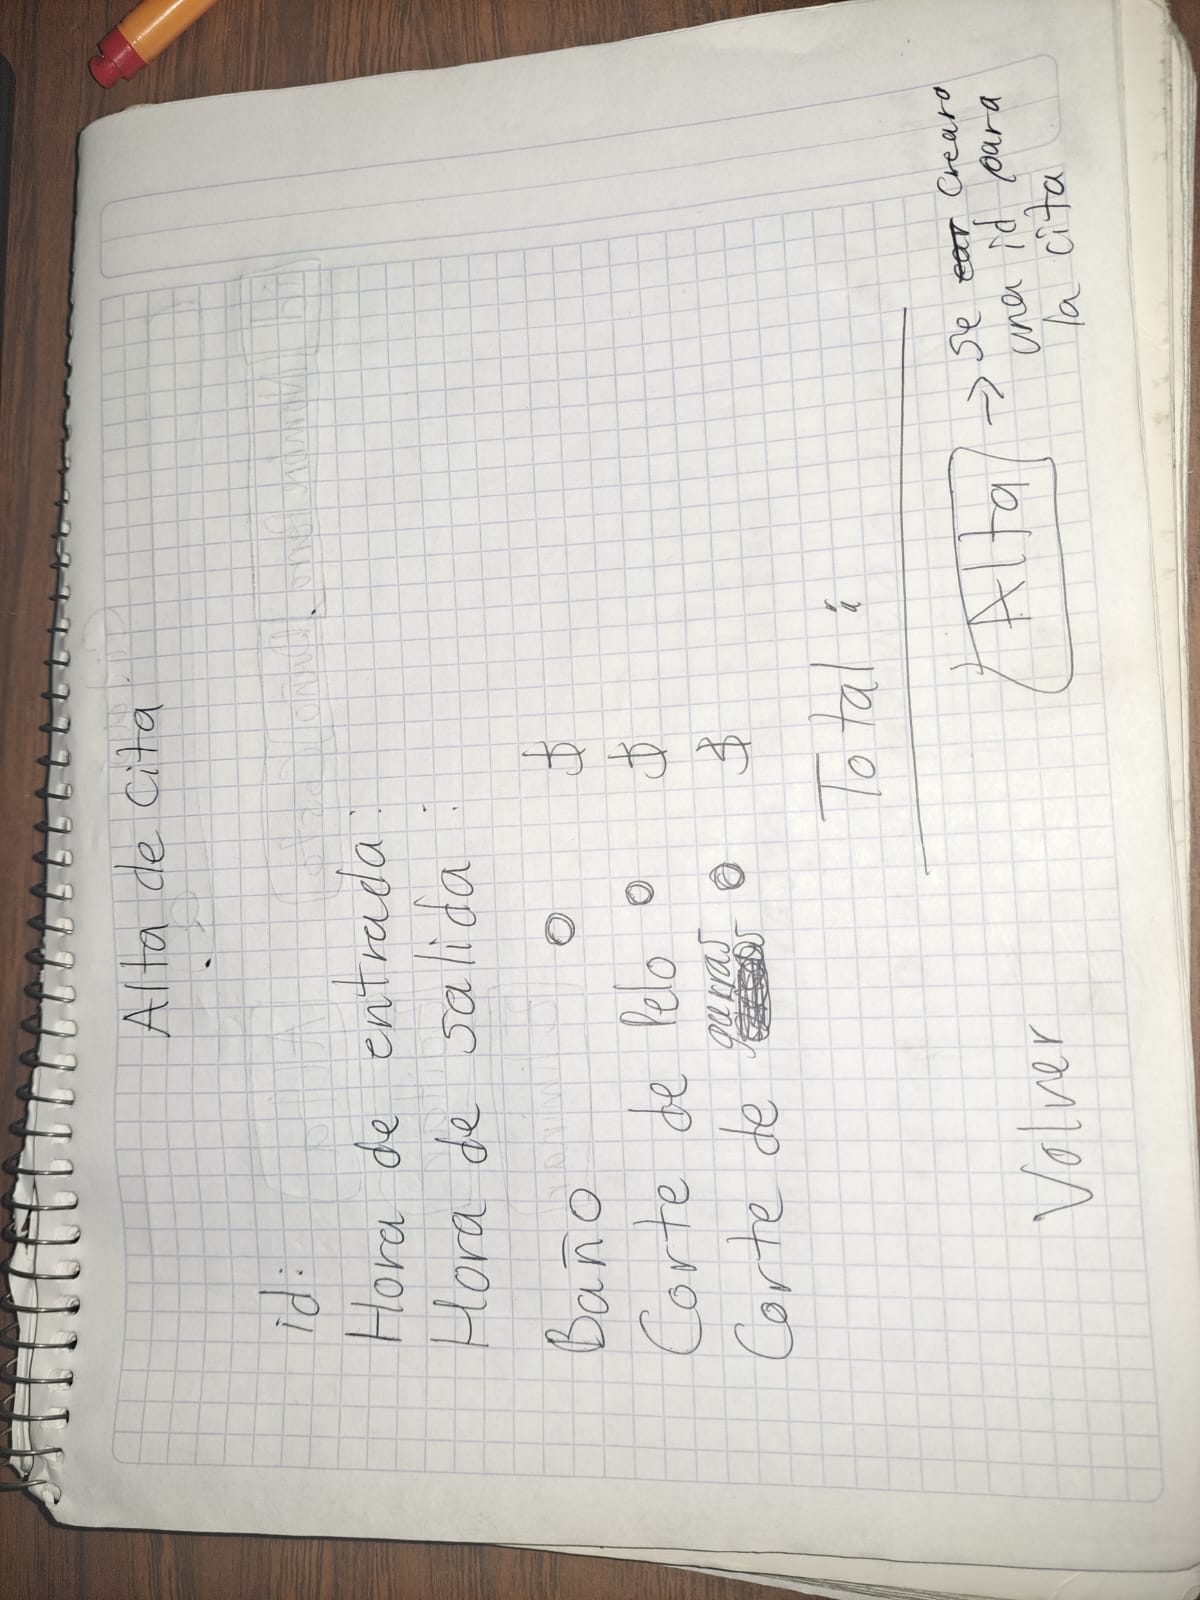 Alta de Cita
id:
Hora de entrada:
Hora de salida :
Baño $
Corte de Pelo $
Corte de garras $
Total :
Alta → Se crearo
una id para
la cita
Volver